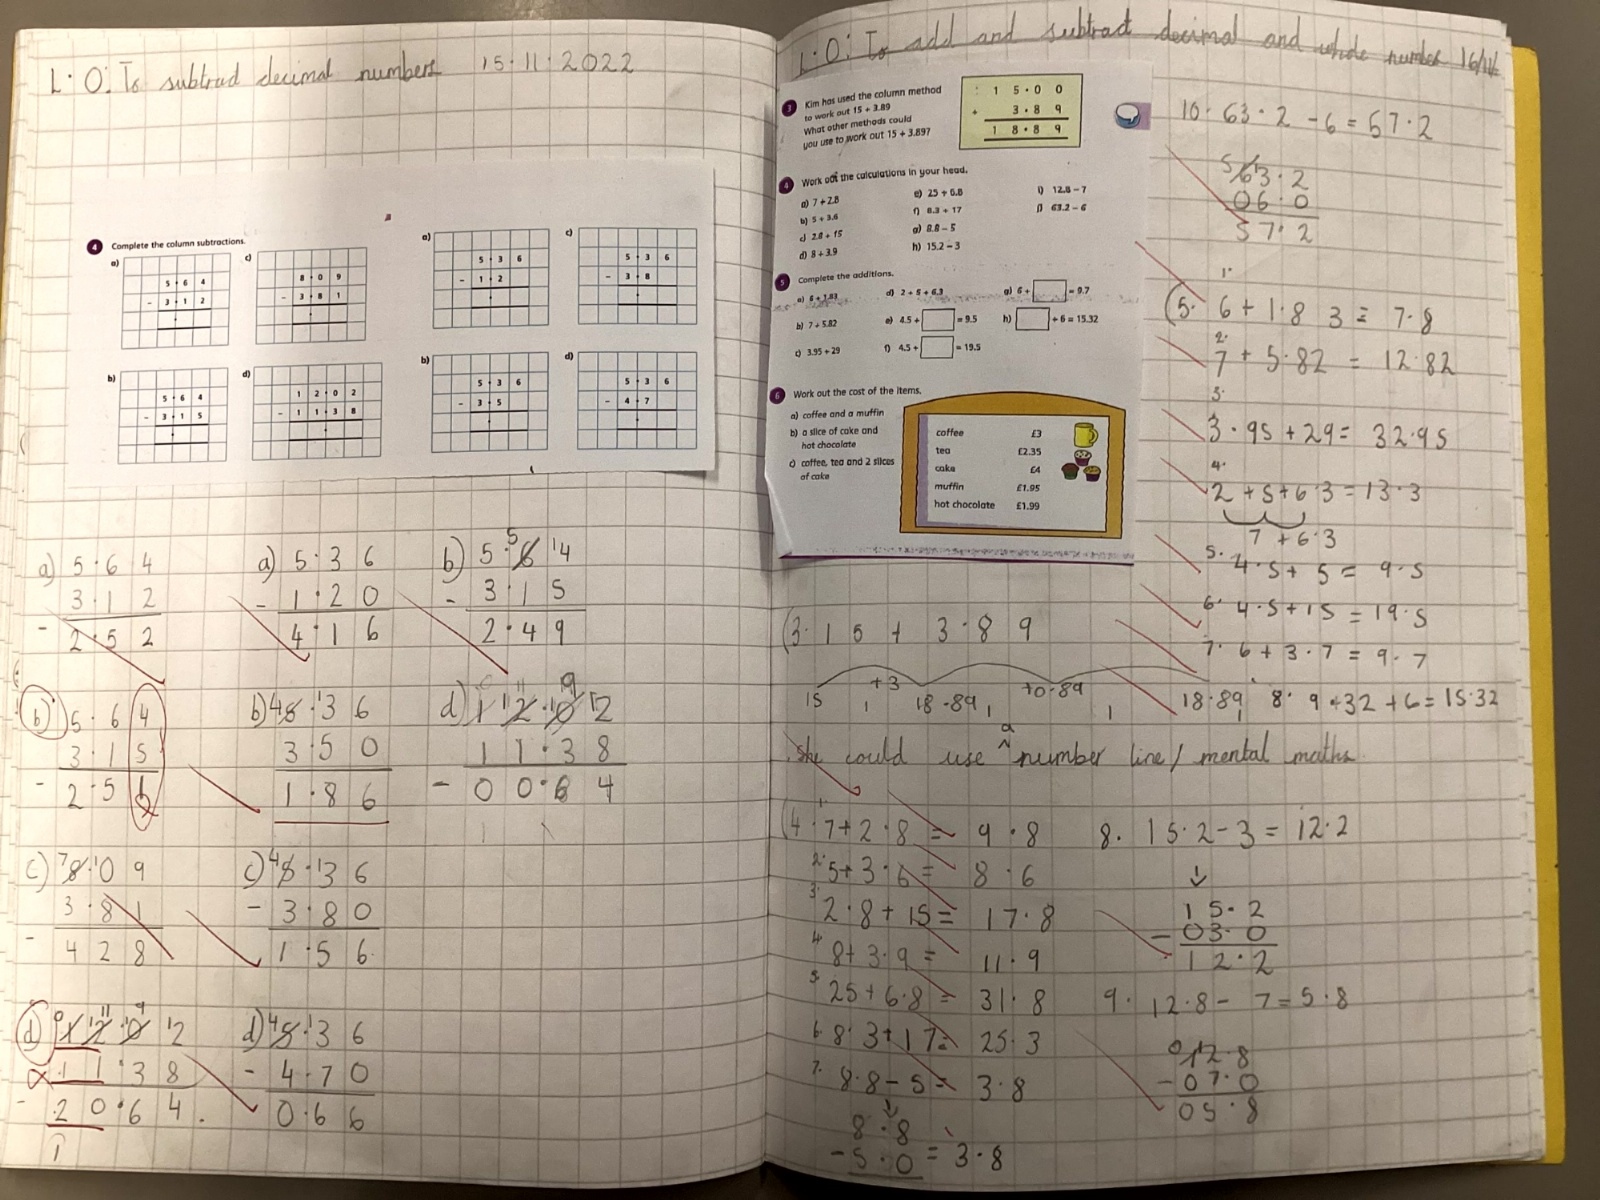 L·O: To subtrad decimal numbers 15·11·2022
4 Complete the column subtractions.
a)
5·64
- 3·12
c)
8·09
- 3·81
b)
5·64
- 3·15
d)
12·02
- 11·38
a)
5·36
- 1·2
c)
5·36
- 3·8
b)
5·36
- 3·5
d)
5·36
- 4·7
a) 5·64
3·12
-
2·52
a) 5·36
- 1·20
4·16
b) 5·56 14
- 3·15
2·49
b) 5·64
3·15
-
2·51
b) 45·136
3·50
1·86
d) 1 12·10 12
11·38
- 00·64
c) 78·109
3·81
-
428
c) 45·136
- 3·80
1·56
d) 012·10 12
11·38
-
20·64.
d) 45·136
- 4·70
0·66
L·O: To add and subtrad decimal and whole number 16/11
3 Kim has used the column method
to work out 15 + 3.89
What other methods could
you use to work out 15 + 3.89?
15·00
+ 3·89
18·89
4 Work out the calculations in your head.
a) 7 + 2.8
b) 5 + 3.6
c) 2.8 + 15
d) 8 + 3.9
e) 25 + 6.8
f) 8.3 + 17
g) 8.8 – 5
h) 15.2 – 3
i) 12.8 – 7
j) 63.2 – 6
5 Complete the additions.
a) 6 + 1.83
b) 7 + 5.82
c) 3.95 + 29
d) 2 + 5 + 6.3
e) 4.5 + = 9.5
f) 4.5 + = 19.5
g) 6 + = 9.7
h) + 6 = 15.32
6 Work out the cost of the items.
a) coffee and a muffin
b) a slice of cake and
hot chocolate
c) coffee, tea and 2 slices
of cake
coffee £3
tea £2.35
cake £4
muffin £1.95
hot chocolate £1.99
(3. 15 + 3·89
+3 +0·89
15 18·89 18·89
She could use a number line / mental maths.
(4. 1. 7+2·8 = 9·8
2. 5+3·6 = 8·6
3. 2·8+15 = 17·8
4. 8+3·9 = 11·9
5. 25+6·8 = 31·8
6. 8·3+17= 25·3
7. 8·8-5= 3·8
8·8
-5·0 = 3·8
8. 15·2-3 = 12·2
15·2
- 03·0
12·2
9. 12·8- 7=5·8
012·8
-07·0
05·8
10. 63·2 -6=57·2
5613·2
06·0
57·2
(5. 1. 6+1·8 3 = 7·8
2. 7 + 5·82 = 12·82
3. 3·95+29= 32·95
4. 2+5+6·3=13·3
7 +6·3
5. 4·5+ 5 = 9·5
6. 4·5+15 = 19·5
7. 6+3·7 = 9·7
8. 9·32 +6=15·32